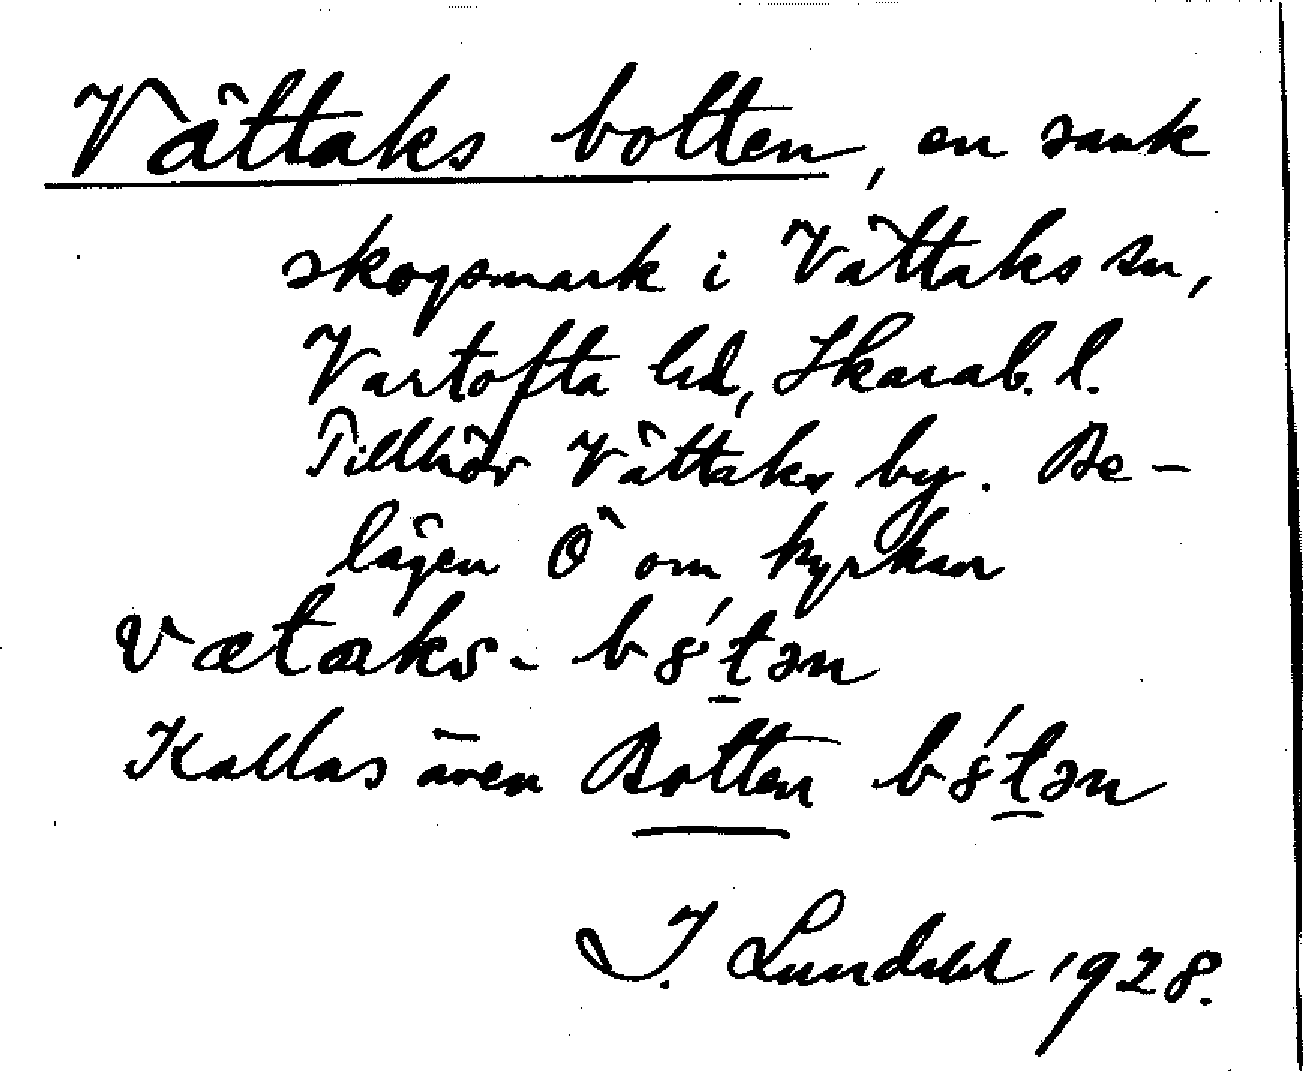 Vättaks botten, en sank
skogsmark i Vättaks sn,
Vartofta hd, Skarab. l.
Tillhör Vättaks by. Be-
lägen Ö om kyrkan
vætaks- b8́t̲ən
Kallas även Botten b8́t̲ən
J. Lundahl 1928.